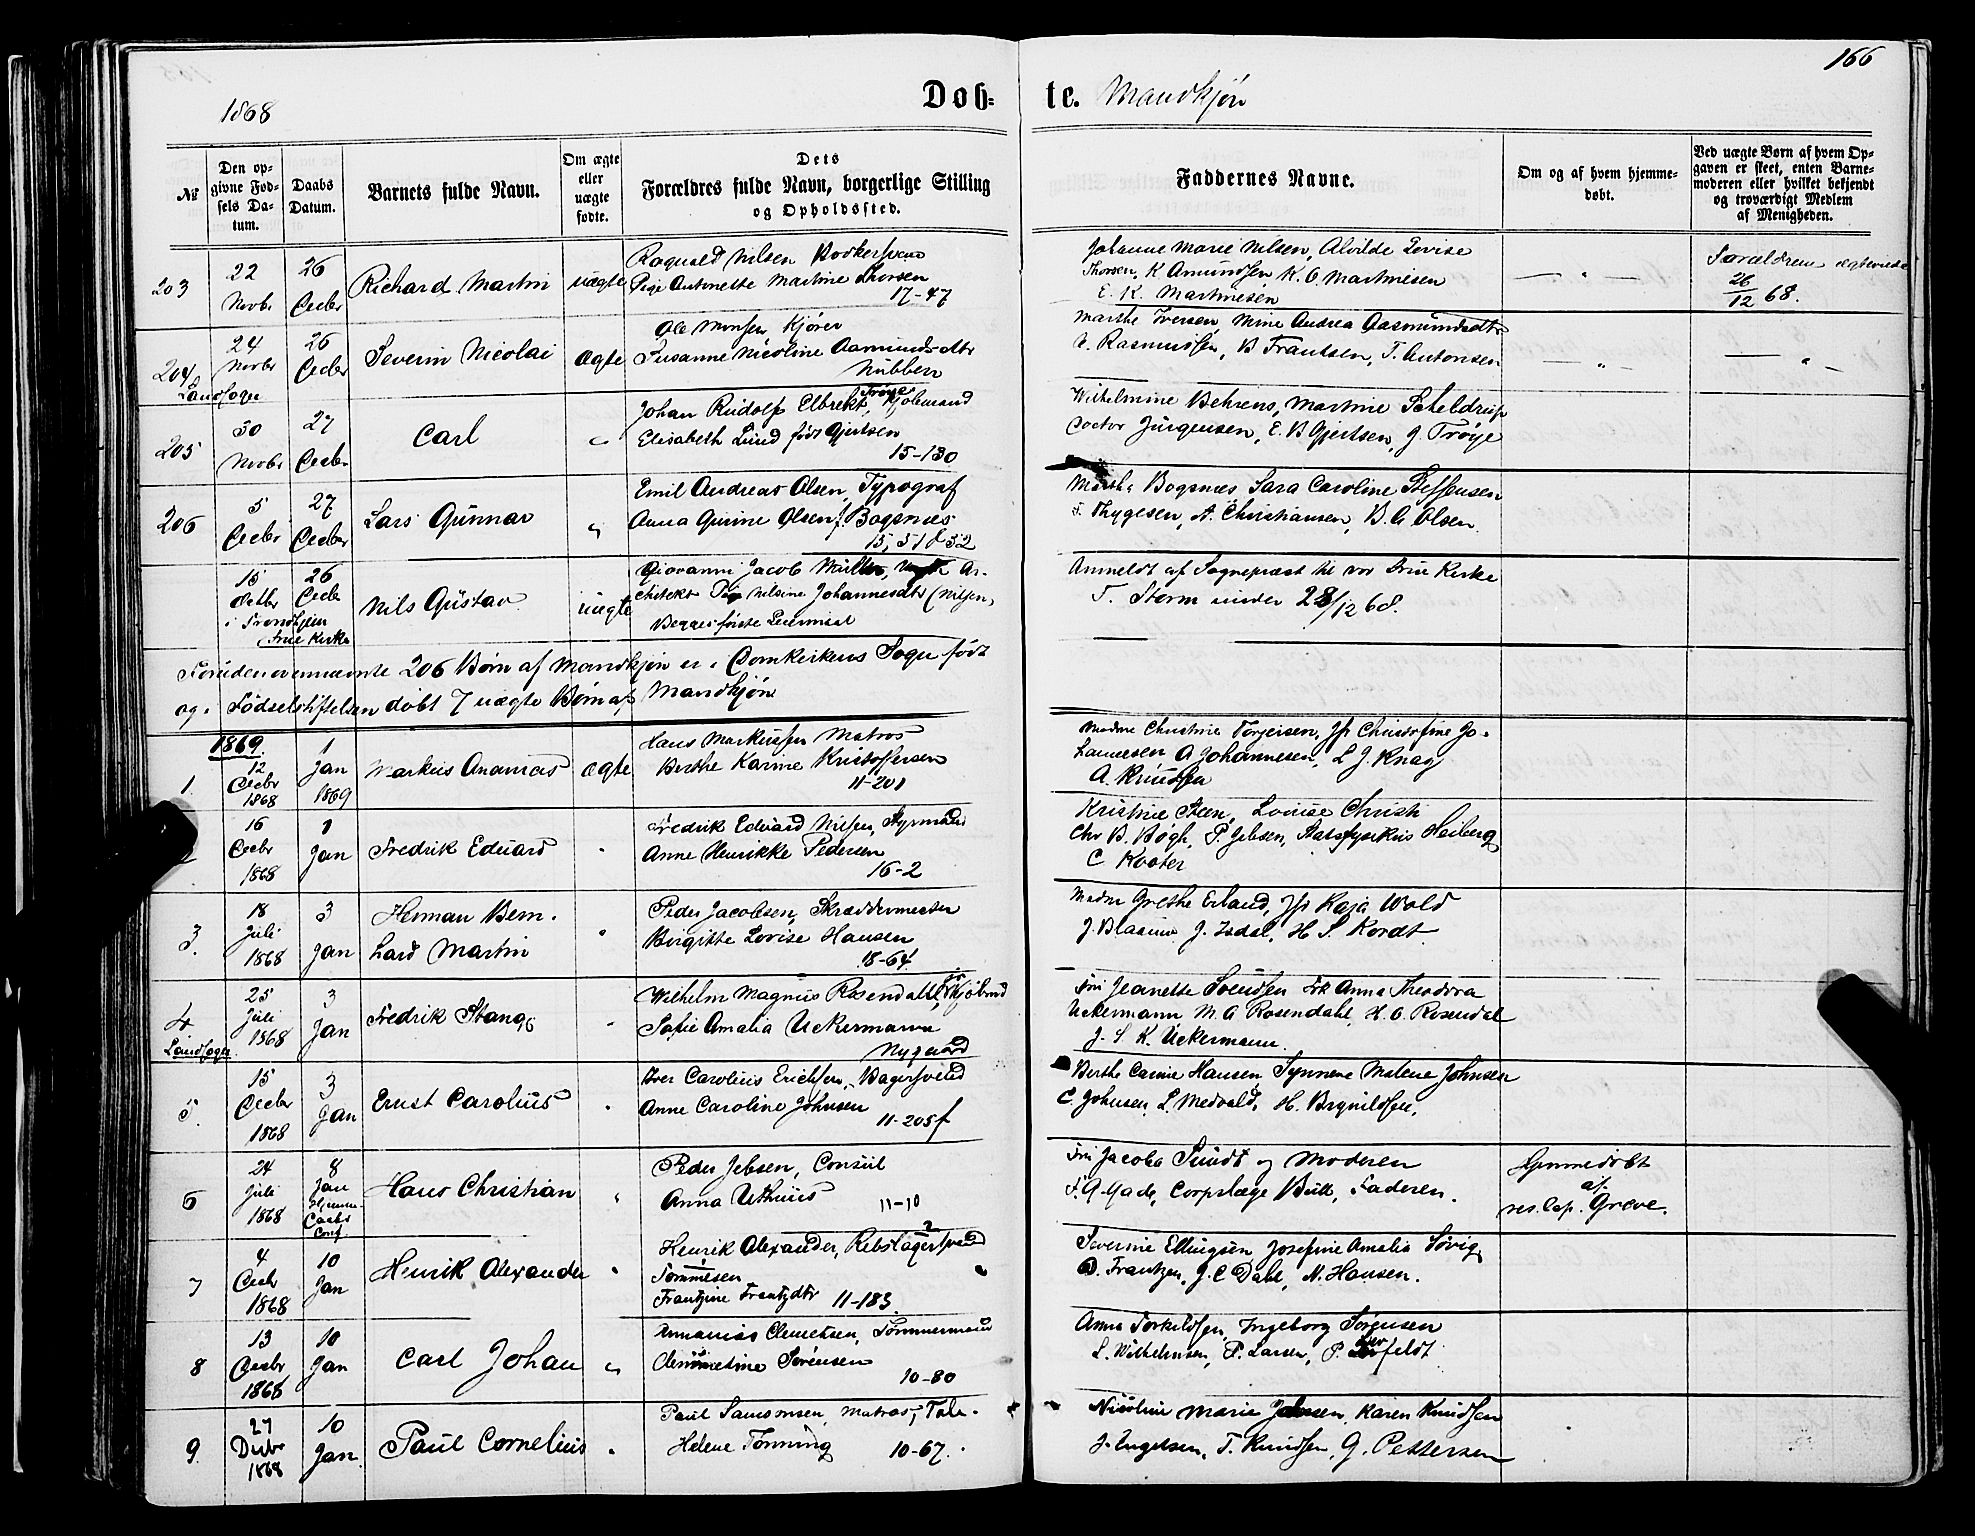 166
1868
Døb-
te. Mandkjøn
№
Den op-
givne Fød-
sels Da-
tum.
Daabs
Datum.
Barnets fulde Navn.
Om ægte
eller
uægte
fødte.
Dets
Forældres fulde Navn, borgerlige Stilling
og Opholdssted.
Faddernes Navne.
Om og af hvem hjemme-
døbt.
Ved uægte Børn af hvem Op-
gaven er skeet, enten Barne-
moderen eller hvilket bekjendt
og troværdigt Medlem
af Menigheden.
203
22
Novbr
26
Decbr
Richard Martin
uægte
Ragnald Nilsen Bødkersvend
Pige Antonette Martine Thorsen
17-47
Johanne Marie Nilsen, Alvilde Lovise
Thorsen, K Amundsen K. O. Martinesen
E. K. Martinesen
Forældrene
26/12 68.
204
Landsogn
24
Novbr
26
Decbr
Severin Nicolai
ægte
Ole Monsen Kjører
Susanne Nicoline Aamundsdtr
Nubben
Marthe Iversen, Mine Andrea Aasmundsdtr
Rasmussen, B Frantsen, T. Antonsen
205
30
Novbr
27
Decbr
Carl
Johan Rudolf Elbrekt Trøye, Kjøbmand
Elisabeth Lund født Gjertsen
15-130
Wilhelmine Behrens, Martine Scheldrup
Doctor Jürgensen, E. B Gjertsen, J. Trøye
206
5
Decbr
27
Decbr
Lars Gunnar
Emil Andreas Olsen, Typograf
Anna Gurine Olsen f. Bogsnes
15, 51 & 52
Marthe Bogsnæs, Sara Caroline Steffensen
T. Thygesen, A. Christiansen, B. G. Olsen
15
Octbr
i Trondhjem
Frue Kirke
26
Decbr
Nils Gustav
uægte
Giovanni Jacob Müller, Ar-
chitekt Pige Nilsine Johannesdtr (Nilsen)
Begges første Leiermaal
Anmeldt af Sognepræst til vor Frue Kirke
F. Storm under 28/12 68.
Foruden ovennævnte 206 Børn af Mandkjøn er i Domkirkens Sogn født
og i Fødselstiftelsen døbt 7 uægte Børn af Mandkjøn
1869.
1.
12
Decbr
1868
1
Jan
1869
Markus Ananias
ægte
Hans Markussen Matros
Berthe Karine Kristoffersen
11-201
Madm Christine Torgersen, Jfr Christofine Jo-
hannesen A Johannesen, L J. Knag
A. Knudsen
16
Decbr
1868
1
Jan
Fredrik Eduard
Fredrik Eduard Nilsen, Styrmand
Anne Henrikke Pedersen
16-2
Kristine Steen, Lovise Christi
Chr B. Bøgh, P. Jebsen, Stadsfysikus Heiberg
C Kooter
3.
18
Juli
1868
3
Jan
Herman Bern-
hard Martin
Peder Jacobsen, Skræddermester
Birgitte Lovise Hansen
18-64
Madm Grethe Erland, Jfr Kaja Wold
J. Blaauw J. Isdal, H S. Kordt
4
Landsogn
25
Juli
1868
3
Jan
Fredrik Stang
Wilhelm Magnus Rosendahl, jr Kjøbmd
Sofie Amalia Uckermann
Nygaard
Fru Jeanette Svendsen Frk Anna Theodora
Uckermann M. A Rosendahl, H. O. Rosendal
J. S. K. Uckermann.
5.
15
Decbr
1868
3
Jan
Ernst Carolius
Iver Carolius Erichsen, Bagersvend
Anne Caroline Johnsen
11-205f
Berthe Carine Hansen Synneve Malene Johnsen
C. Johnsen, L. Medvald, H. Brynildsen,
6
24
Juli
1868
8
Jan
Hjemme-
Daabs
Conf.
Hans Christian
Peder Jebsen, Consul
Anna Uthuus
11-10
Fru Jacobe Sundt og Moderen
F. G Gade, Corpslæge Bull, Faderen.
Hjemmedøbt
af
res. Cap. Greve.
7
4
Decbr
1868
10
Jan
Henrik Alexander
Henrik Alexander, Rebslagersvend
Tommesen
Frantzine Frantzdtr 11-183
Severine Ellingsen Josefine Amalia Søvig
D. Frantzen, J. C Dahl, N. Hansen.
8
13
Decbr
1868
10
Jan
Carl Johan
Annanias Clemetsen, Tømmermand
Clemmetine Sørensen
10-80
Anna Torkildsen, Ingeborg Sørensen
L. Wilhelmsen, P. Larsen, P.
9.
27
Decbr
1868
10
Jan
Paul Cornelius
Paul Samsonsen, Matros, Tale-
Helene Tønning 10-67.
Nicoline Marie Johnsen, Karen Knudsen
J. Engelsen, T. Knudsen, G. Pettersen